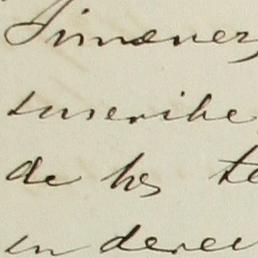 Jimenez
suscribe
de los te
en derec